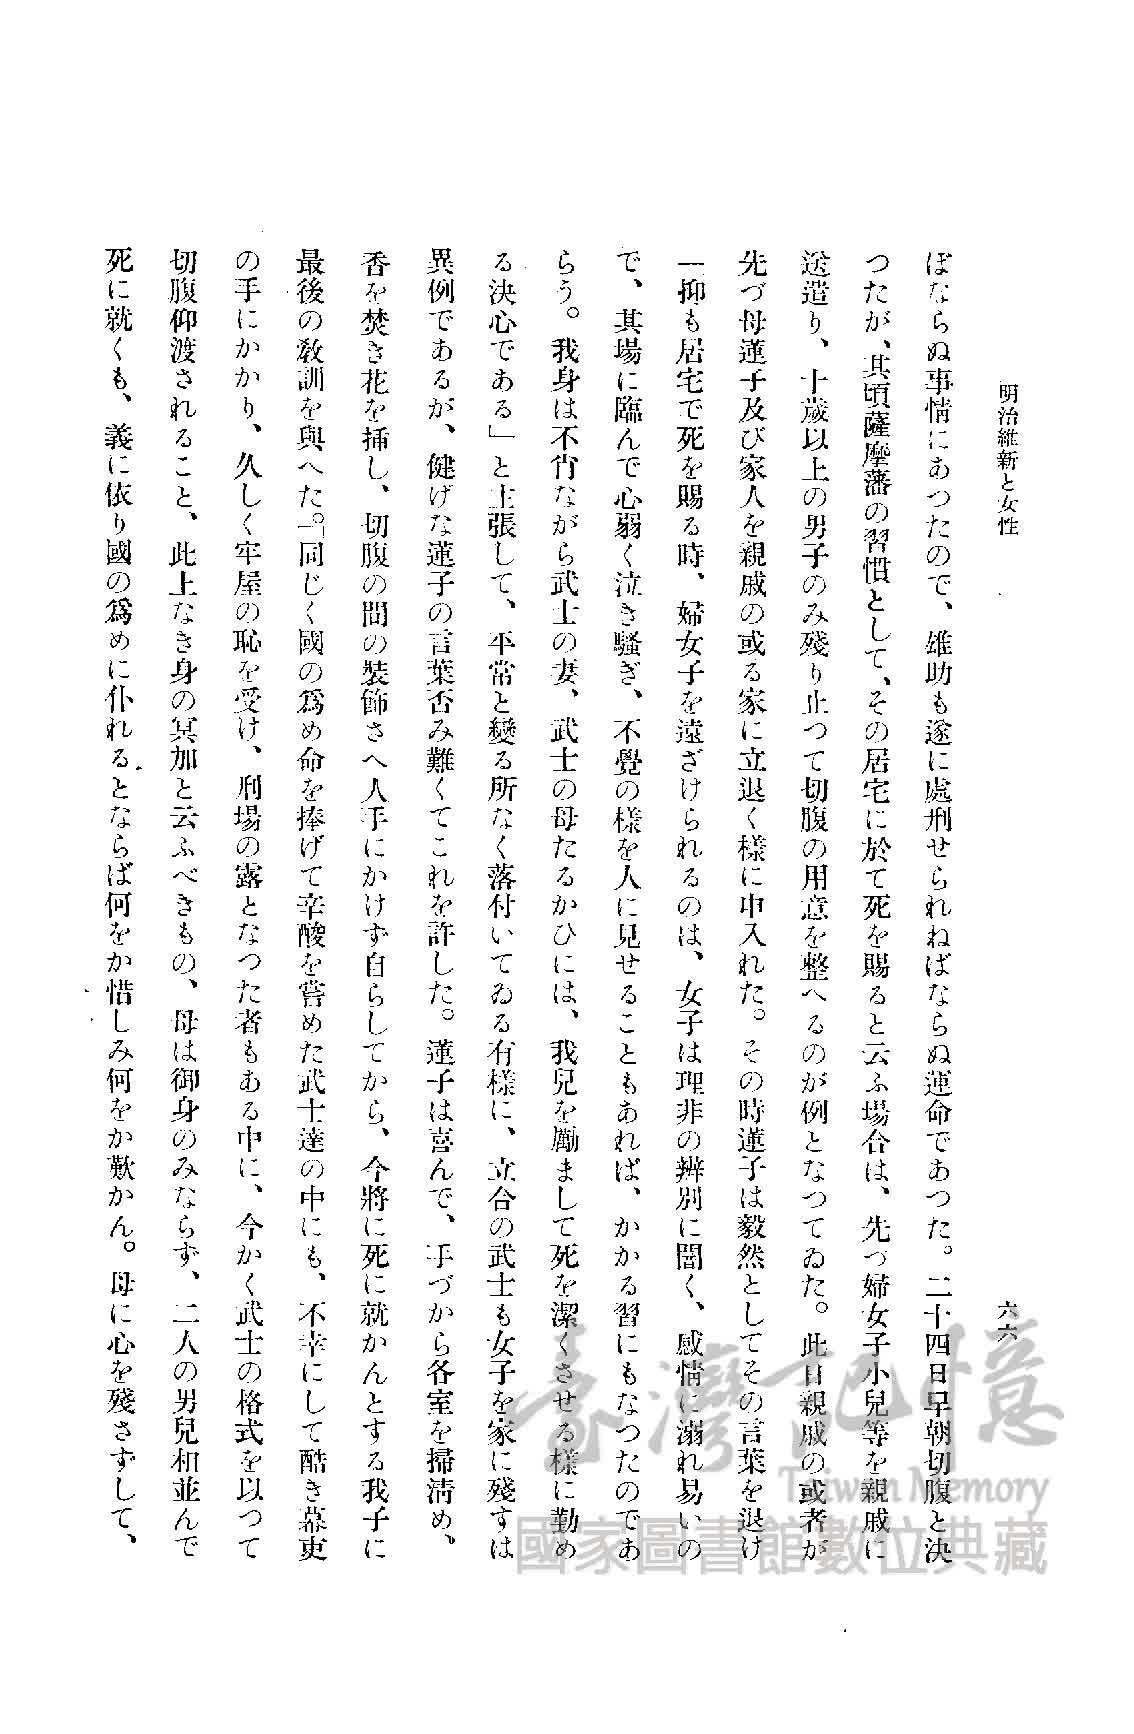 明治維新と女性
六六
ぼならぬ事情にあつたので、雄助も遂に處刑せられねばならぬ運命であつた。二十四日早朝切腹と決
つたが、其頃薩摩藩の習慣として、その居宅に於て死を賜ると云ふ場合は、先づ婦女子小兒等を親戚に
送遣り、十歲以上の男子のみ殘り止つて切腹の用意を整へるのが例となつてゐた。此日親戚の或者が
先づ母蓮子及び家人を親戚の或る家に立退く樣に申入れた。その時蓮子は毅然としてその言葉を退け
「抑も居宅で死を賜る時、婦女子を遠ざけられるのは、女子は理非の辨別に闇く、感情に溺れ易いの
で、其場に臨んで心弱く泣き騷ぎ、不覺の樣を人に見せることもあれば、かかる習にもなつたのであ
らう。我身は不肖ながら武士の妻、武士の母たるかひには、我兒を勵まして死を潔くさせる樣に勤め
る決心である」と主張して、平常と變る所なく落付いてゐる有樣に、立合の武士も女子を家に殘すは
異例であるが、健げな蓮子の言葉否み難くてこれを許した。蓮子は喜んで、手づから各室を掃淸め、
香を焚き花を揷し、切腹の間の裝飾さへ人手にかけず自らしてから、今將に死に就かんとする我子に
最後の敎訓を與へた。「同じく國の爲め命を捧げて辛酸を嘗めた武士達の中にも、不幸にして酷き幕吏
の手にかかり、久しく牢屋の恥を受け、刑場の露となつた者もある中に、今かく武士の格式を以つて
切腹仰渡されること、此上なき身の冥加と云ふべきもの、母は御身のみならず、二人の男兒相並んで
死に就くも、義に依り國の爲めに仆れるとならば何をか惜しみ何をか歎かん。母に心を殘さずして、
臺灣記憶
Taiwan Memory
國家圖書館數位典藏